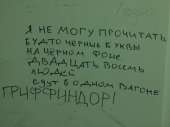 Я НЕ МОГУ ПРОЧИТАТЬ
БУДТО ЧЕРНЫЕ БУКВЫ
НА ЧЕРНОМ ФОНЕ
ДВАДЦАТЬ ВОСЕМЬ
ЛЮДЕЙ
ЕДУТ В ОДНОМ ВАГОНЕ
ГРИФФИНДОР!